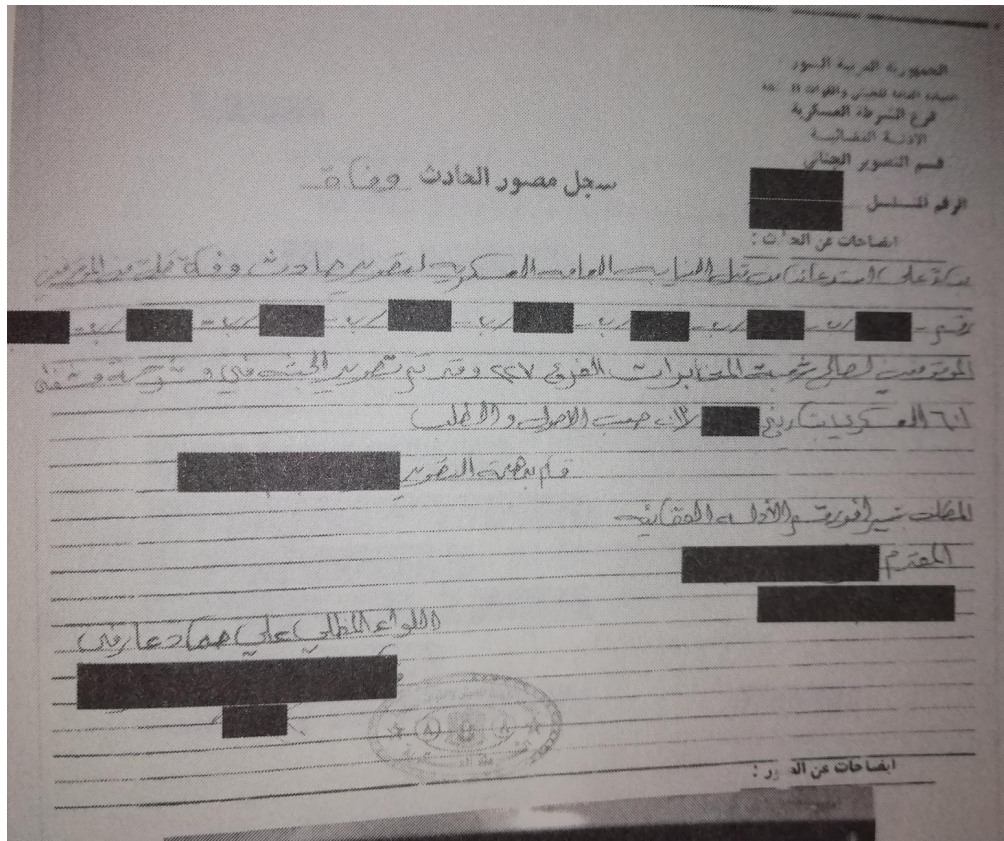 الجمهورية العربية السور
القيادة العامة للجيش والقوات
فرع الشرطة العسكرية
الأدلة القضائية
قسم التصوير الجنائي
الرقم المتسلسل
سجل مصور الحادث وفاة
ايضاحات عن الحادث :
بناء على استدعائنا من قبل النيابة العامة العسكرية لتصوير حادث وفاة كل من الموقوفين
رقم - /ب - /ب - /ب - /ب - /ب - /ب - /ب -
الموقوفين لصالح شعبة المخابرات الفرع ٢٢٧ وقد تم تصوير الجثث في مشفى
العسكري بتاريخ حسب الاصول والطلب
قام بمهمة التصوير
الأدلة القضائية
المقدم
اللواء علي
ايضاحات عن الصور :